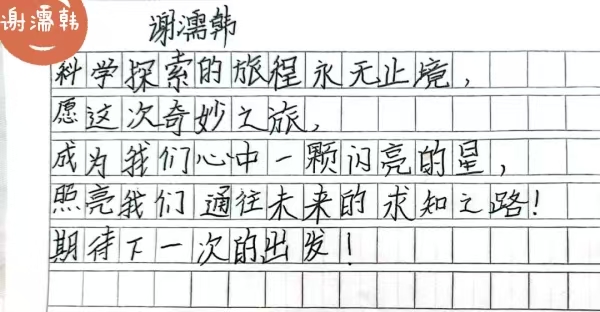 谢濡韩
谢濡韩
科学探索的旅程永无止境，
愿这次奇妙之旅，
成为我们心中一颗闪亮的星，
照亮我们通往未来的求知之路！
期待下一次的出发！